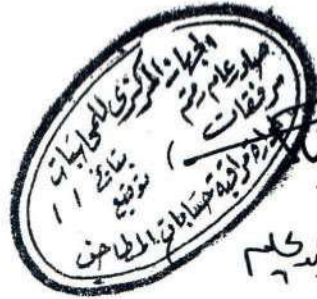 الجهاز المركزى للمحاسبات
صادر عام رقم
مرفقات
بتاريخ / /
توقيع
مراقبة حسابات المطاحن